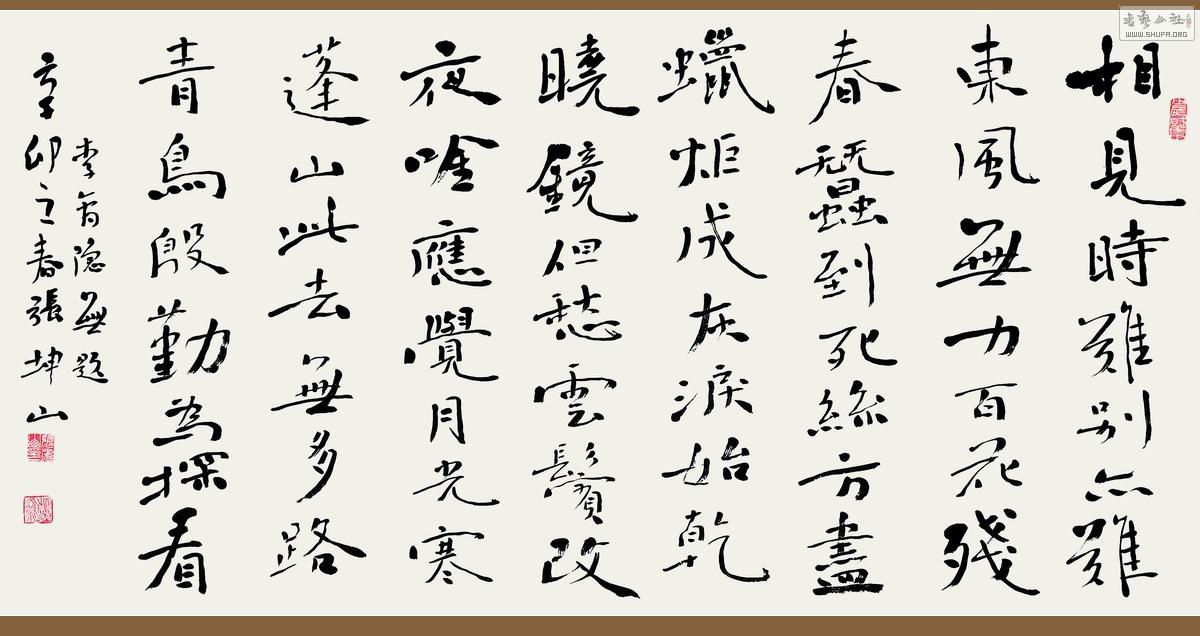 相見時難别亦難
東風無力百花殘
春蠶到死絲方盡
蠟炬成灰淚始乾
曉鏡但愁雲鬢改
夜唫應覺月光寒
蓬山此去無多路
青鳥殷勤為探看
李商隐無題
辛卯之春張坤山
WWW.SHUFA.ORG